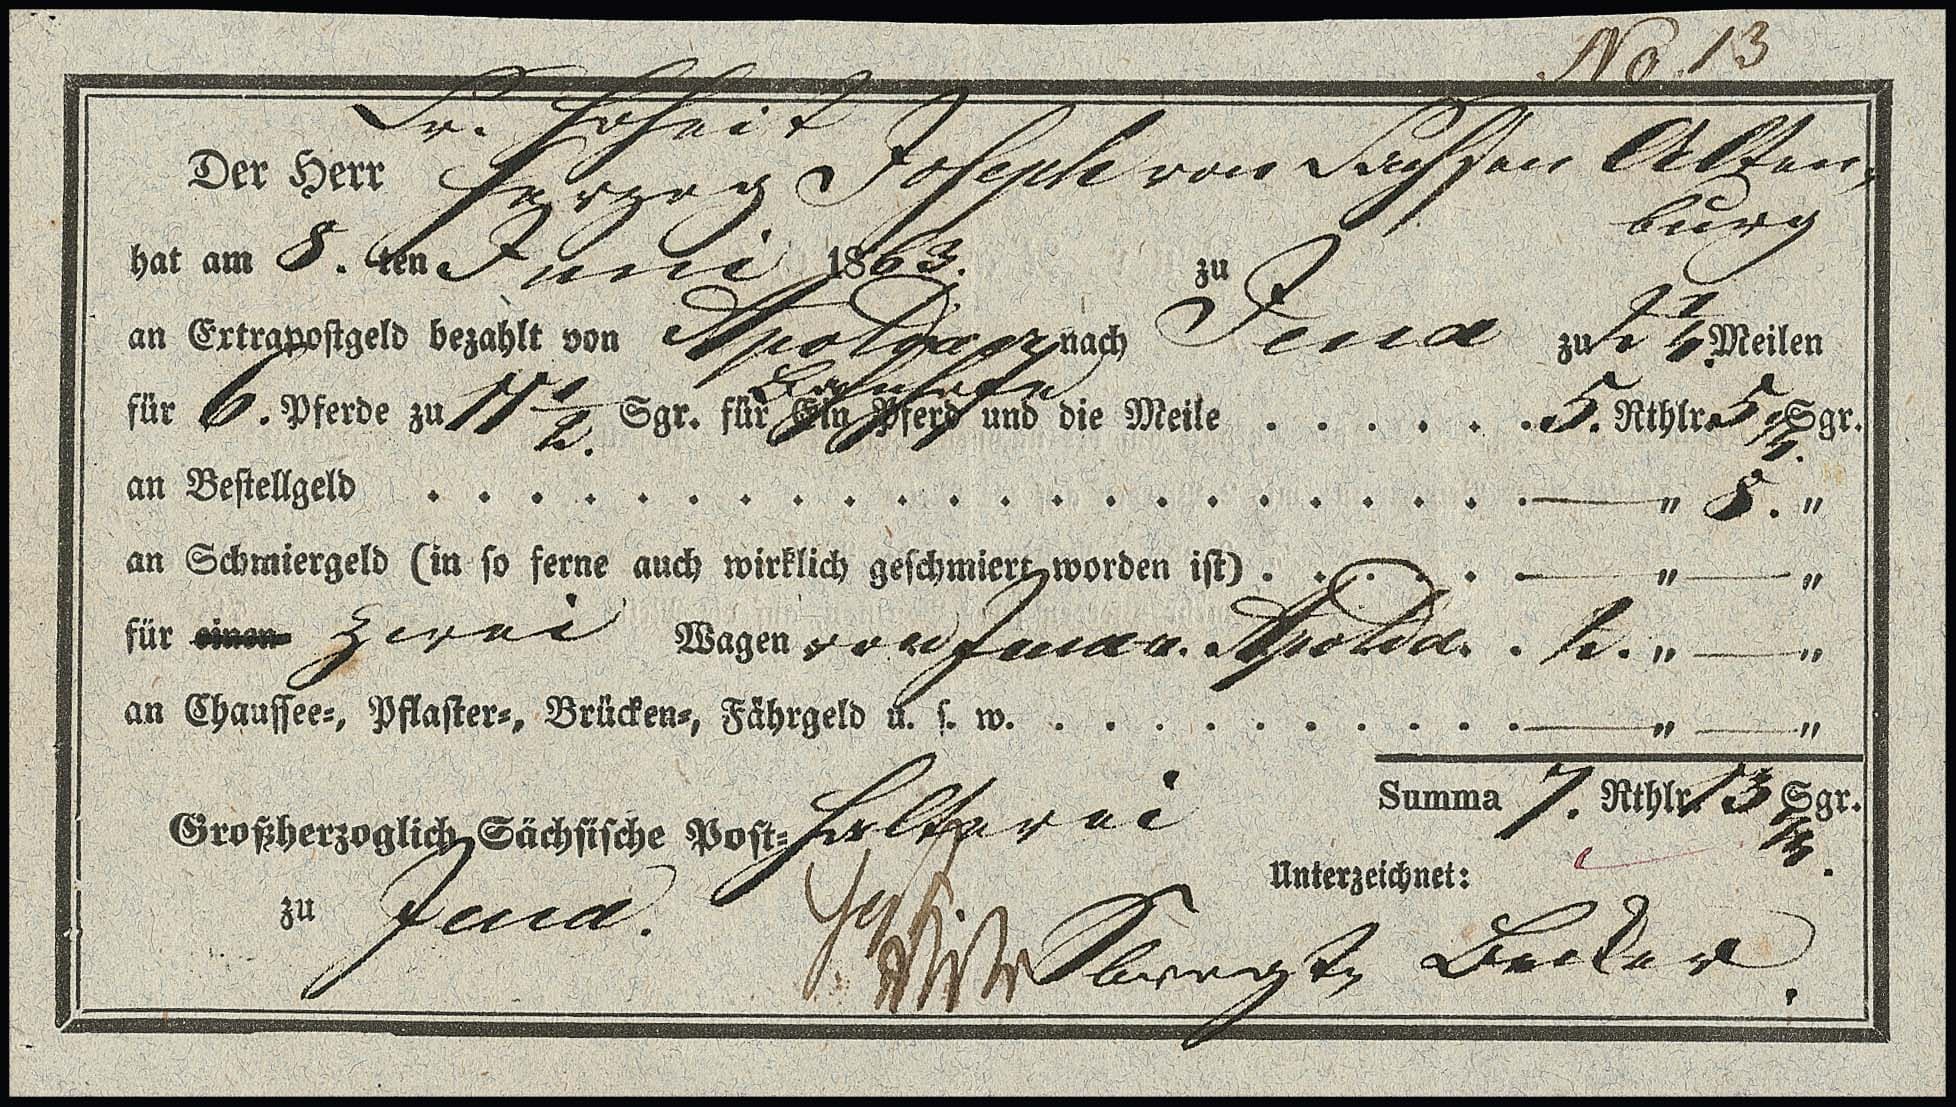 No. 13
Sr. Hoheit
Der Herr Herzog Joseph von Sachsen Alten,
burg
hat am 8. ten Juni 1863. zu
an Extrapostgeld bezahlt von Apolda nach Jena zu 2 1/4 Meilen
für 6. Pferde zu 11 1/2. Sgr. für Ein Pferd und die Meile . . . . . . 5. Rthlr. 5 1/4. Sgr.
an Bestellgeld . . . . . . . . . . . . — " 8. "
an Schmiergeld (in so ferne auch wirklich geschmiert worden ist) . . . . . — " — "
für einen zwei Wagen von Jena n. Apolda. . 2. " — "
an Chaussee-, Pflaster-, Brücken-, Fährgeld u. s. w. . . . . . . . . — " — "
Summa 7. Rthlr. 13 1/4. Sgr.
Großherzoglich Sächsische Post-Halterei
zu Jena.
Unterzeichnet:
Becker.